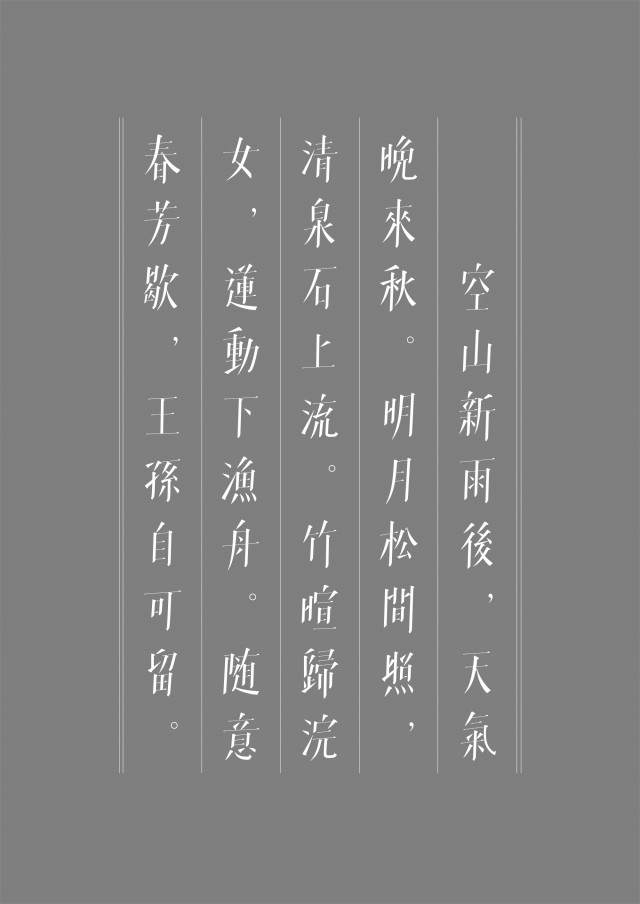 空山新雨後，天氣
晚來秋。明月松間照，
清泉石上流。竹暄歸浣
女，蓮動下漁舟。随意
春芳歇，王孫自可留。